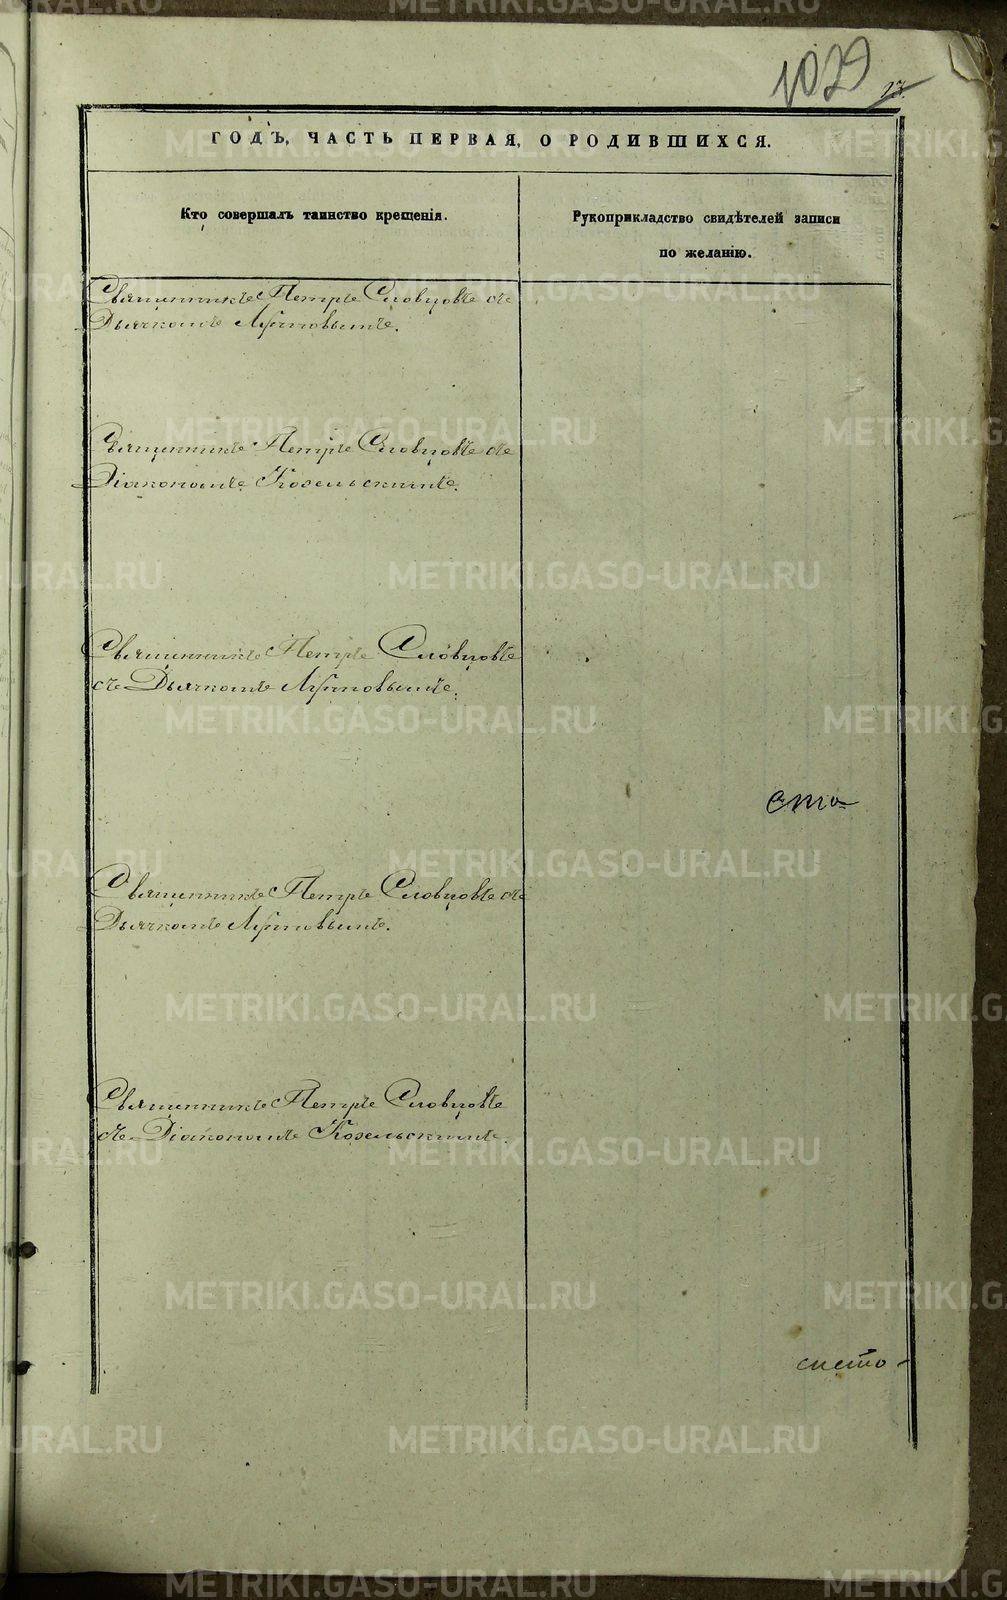 1029
23.
ГОДЪ, ЧАСТЬ ПЕРВАЯ, О РОДИВШИХСЯ.
Кто совершалъ таинство крещенія.
Рукоприкладство свидѣтелей записи
по желанію.
Священникъ Петръ Словцовъ съ
Дьячкомъ Лупповымъ.
Священникъ Петръ Словцовъ съ
Діакономъ Козельскимъ.
Священникъ Петръ Словцовъ
съ Дьячкомъ Лупповымъ.
Священникъ Петръ Словцовъ съ
Дьячкомъ Лупповымъ.
Священникъ Петръ Словцовъ
съ Діакономъ Козельскимъ.
METRIKI.GASO-URAL.RU